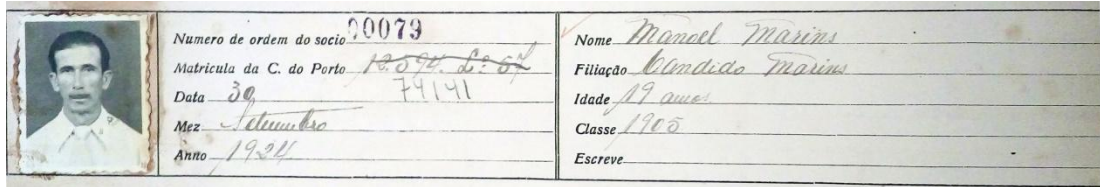 Numero de ordem do socio 00079
Matricula da C. do Porto 12.594. Lº 57
74141
Data 30
Mez Setembro
Anno 1924
Nome Manoel Marins
Filiação Candido Marins
Idade 19 annos
Classe 1905
Escreve